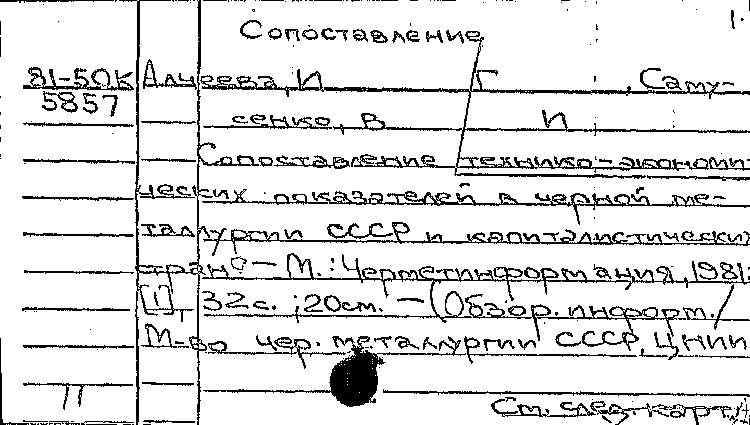 1.
Сопоставление
81-50К Алчеева, И Г , Саму-
5857 сенко, В И
Сопоставление технико-экономи-
ческих показателей в черной ме-
таллургии СССР и капиталистических
стран. — М. : Черметинформация, 1981.
[1], 32с. ; 20см. — (Обзор. информ. /
М-во чер. металлургии СССР, ЦНИИ
11
См. след. карт.